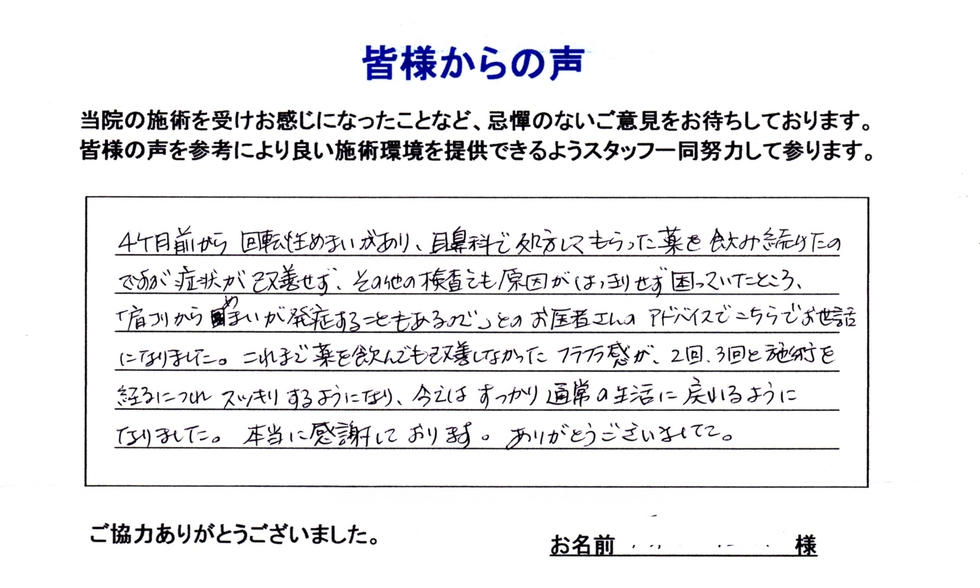 皆様からの声
当院の施術を受けお感じになったことなど、忌憚のないご意見をお待ちしております。
皆様の声を参考により良い施術環境を提供できるようスタッフ一同努力して参ります。
4ケ月前から 回転性めまいがあり、耳鼻科で処方してもらった薬を飲み続けたの
ですが症状が改善せず、その他の検査でも原因がはっきりせず困っていたところ、
「肩コリからめまいが発症することもあるので」とのお医者さんのアドバイスでこちらでお世話
になりました。これまで薬を飲んでも改善しなかったフラフラ感が、2回、3回と施術を
経るにつれ スッキリするようになり、今ではすっかり通常の生活に戻れるように
なりました。本当に感謝しております。ありがとうございました。
ご協力ありがとうございました。
お名前 様